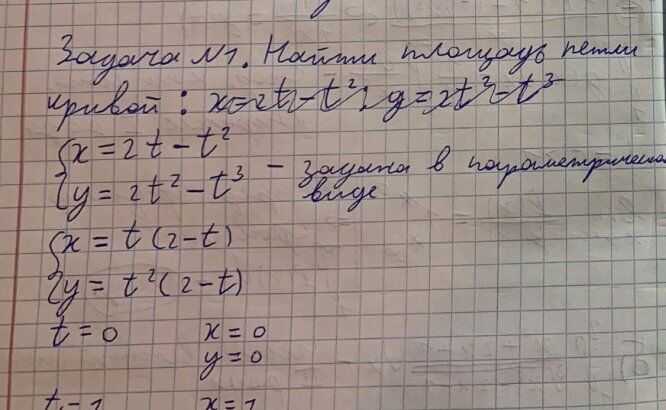 Задача №1. Найти площадь петли
кривой: x=2t-t²; y=2t²-t³
{x=2t-t²
{y=2t²-t³ - задана в параметрическом
виде
{x=t(2-t)
{y=t²(2-t)
t=0 x=0
y=0
t=1 x=1